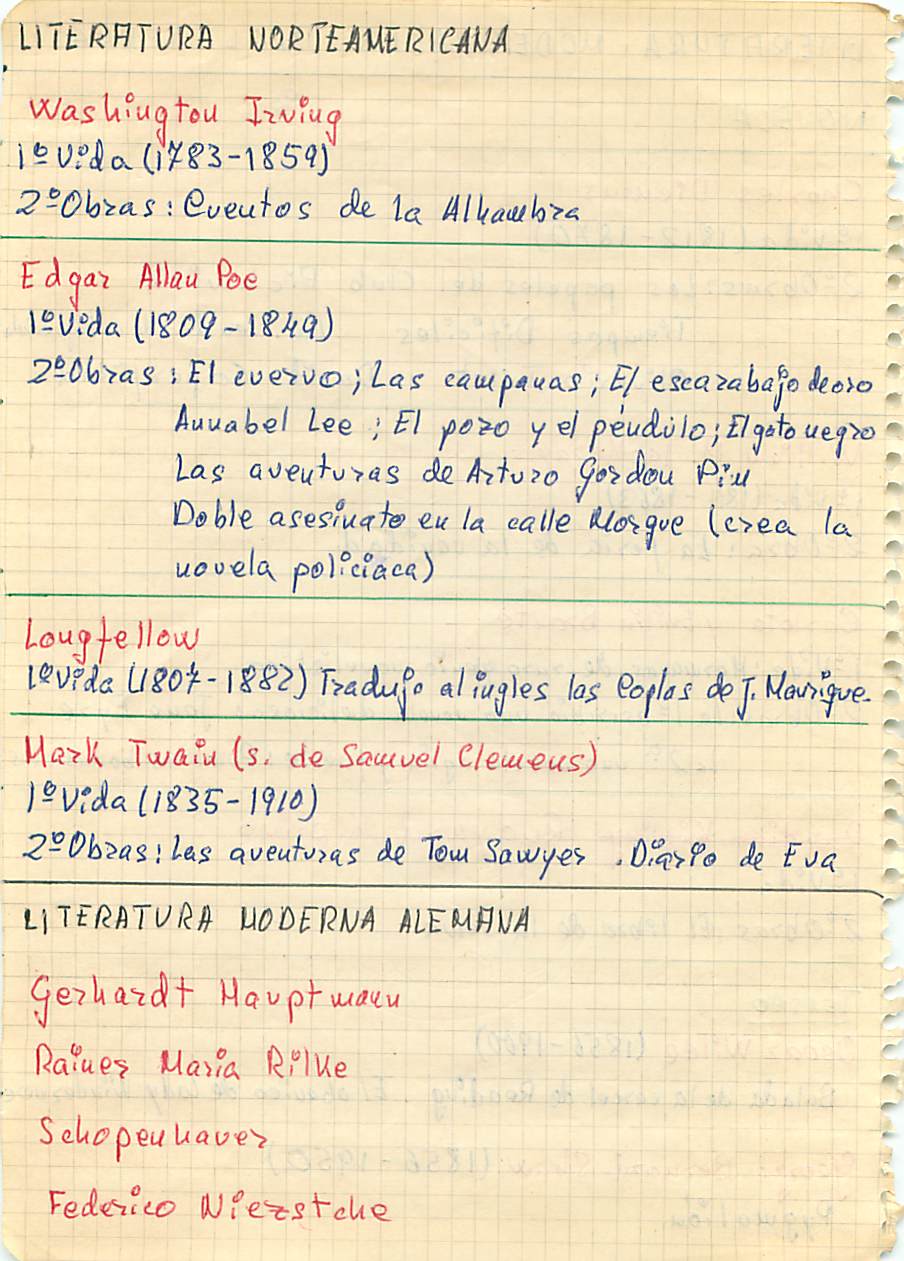 LITERATURA NORTEAMERICANA
Washington Irving
1º Vida (1783-1859)
2º Obras: Cuentos de la Alhambra
Edgar Allan Poe
1º Vida (1809-1849)
2º Obras: El cuervo; Las campanas; El escarabajo de oro
Annabel Lee; El pozo y el péndulo; El gato negro
Las aventuras de Arturo Gordon Pim
Doble asesinato en la calle Morgue (crea la
novela policiaca)
Longfellow
1º Vida (1807-1882) Tradujo al ingles las Coplas de J. Manrique.
Mark Twain (s. de Samuel Clemens)
1º Vida (1835-1910)
2º Obras: Las aventuras de Tom Sawyer. Diario de Eva
LITERATURA MODERNA ALEMANA
Gerhardt Hauptmann
Rainer Maria Rilke
Schopenhauer
Federico Nierstche